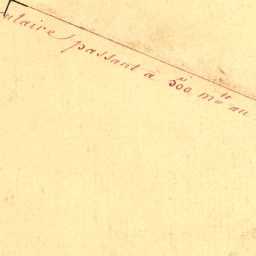 ulaire passant à 500 m au